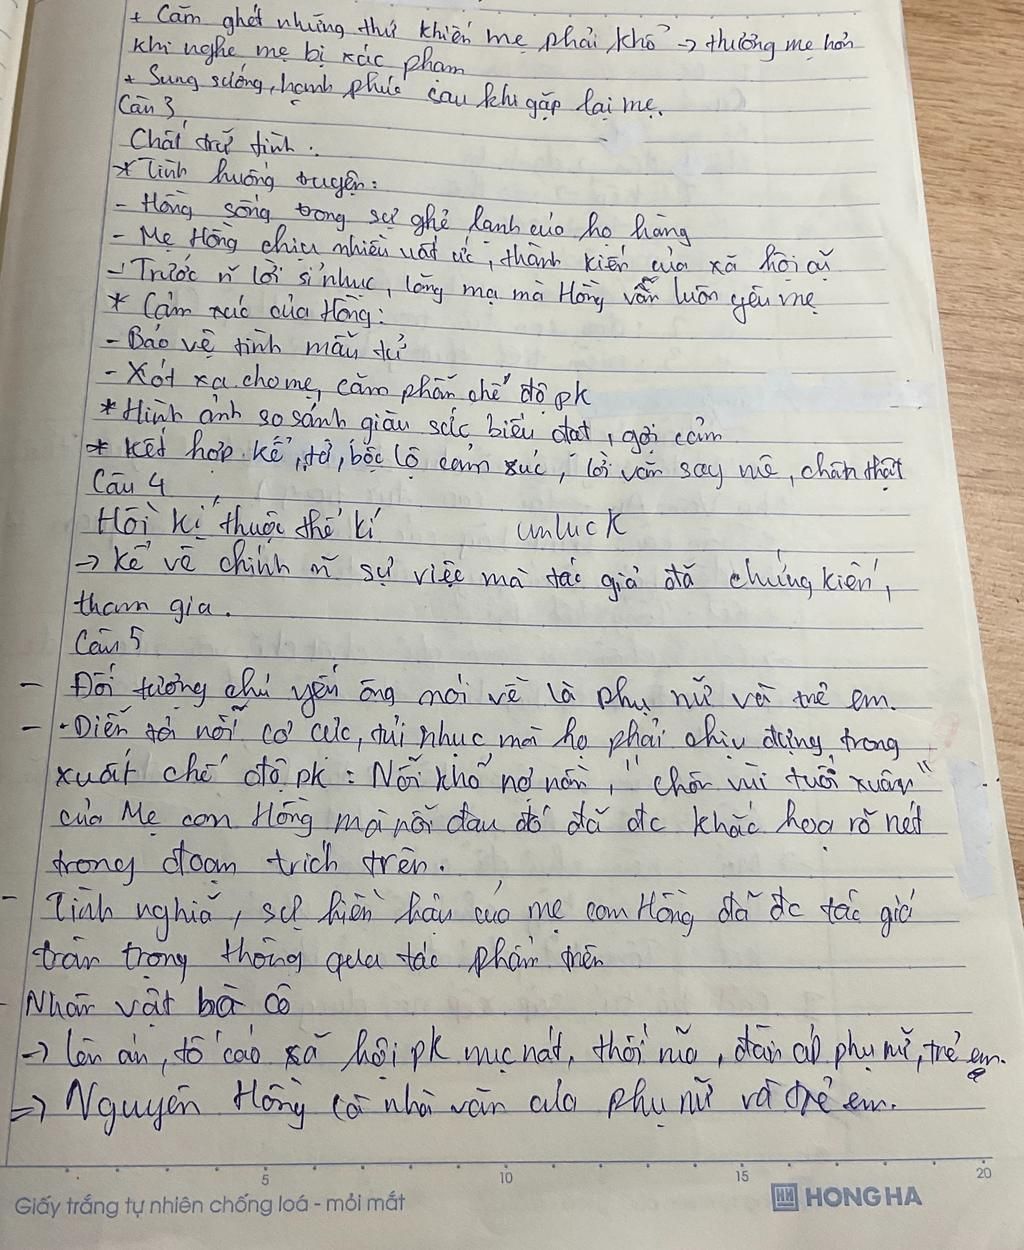 + Căm ghét những thứ khiến mẹ phải khổ → thương mẹ hơn
khi nghe mẹ bị xác phạm
+ Sung sướng, hạnh phúc sau khi gặp lại mẹ.
Câu 3
Chất trữ tình:
* Tình huống truyện:
- Hồng sống trong sự ghẻ lạnh của họ hàng
- Mẹ Hồng chịu nhiều uất ức, thành kiến của xã hội cũ
- Trước n~ lời sỉ nhục, lăng mạ mà Hồng vẫn luôn yêu mẹ
* Cảm xúc của Hồng:
- Bảo vệ tình mẫu tử
- Xót xa cho mẹ, căm phẫn chế độ pk
* Hình ảnh so sánh giàu sức biểu đạt, gợi cảm
* Kết hợp kể, tả, bộc lộ cảm xúc, lời văn say mê, chân thật
Câu 4
Hồi kí thuộc thể kí unlucK
→ Kể về chính n~ sự việc mà tác giả đã chứng kiến,
tham gia.
Câu 5
- Đối tượng chủ yếu ông nói về là phụ nữ và trẻ em.
- Diễn tả nỗi cơ cực, tủi nhục mà họ phải chịu đựng trong
xuất chế độ pk: Nỗi khổ nợ nần, "chôn vùi tuổi xuân"
của Mẹ con Hồng mà nỗi đau đó đã đc khắc họa rõ nét
trong đoạn trích trên.
- Tình nghĩa, sự hiền hậu của mẹ con Hồng đã đc tác giả
trân trọng thông qua tác phẩm trên
- Nhân vật bà cô
→ lên án, tố cáo xã hội pk mục nát, thối nã, đàn áp phụ nữ, trẻ em.
⇒ Nguyên Hồng là nhà văn của phụ nữ và trẻ em.
5 10 15 20
Giấy trắng tự nhiên chống loá - mỏi mắt HH HONG HA